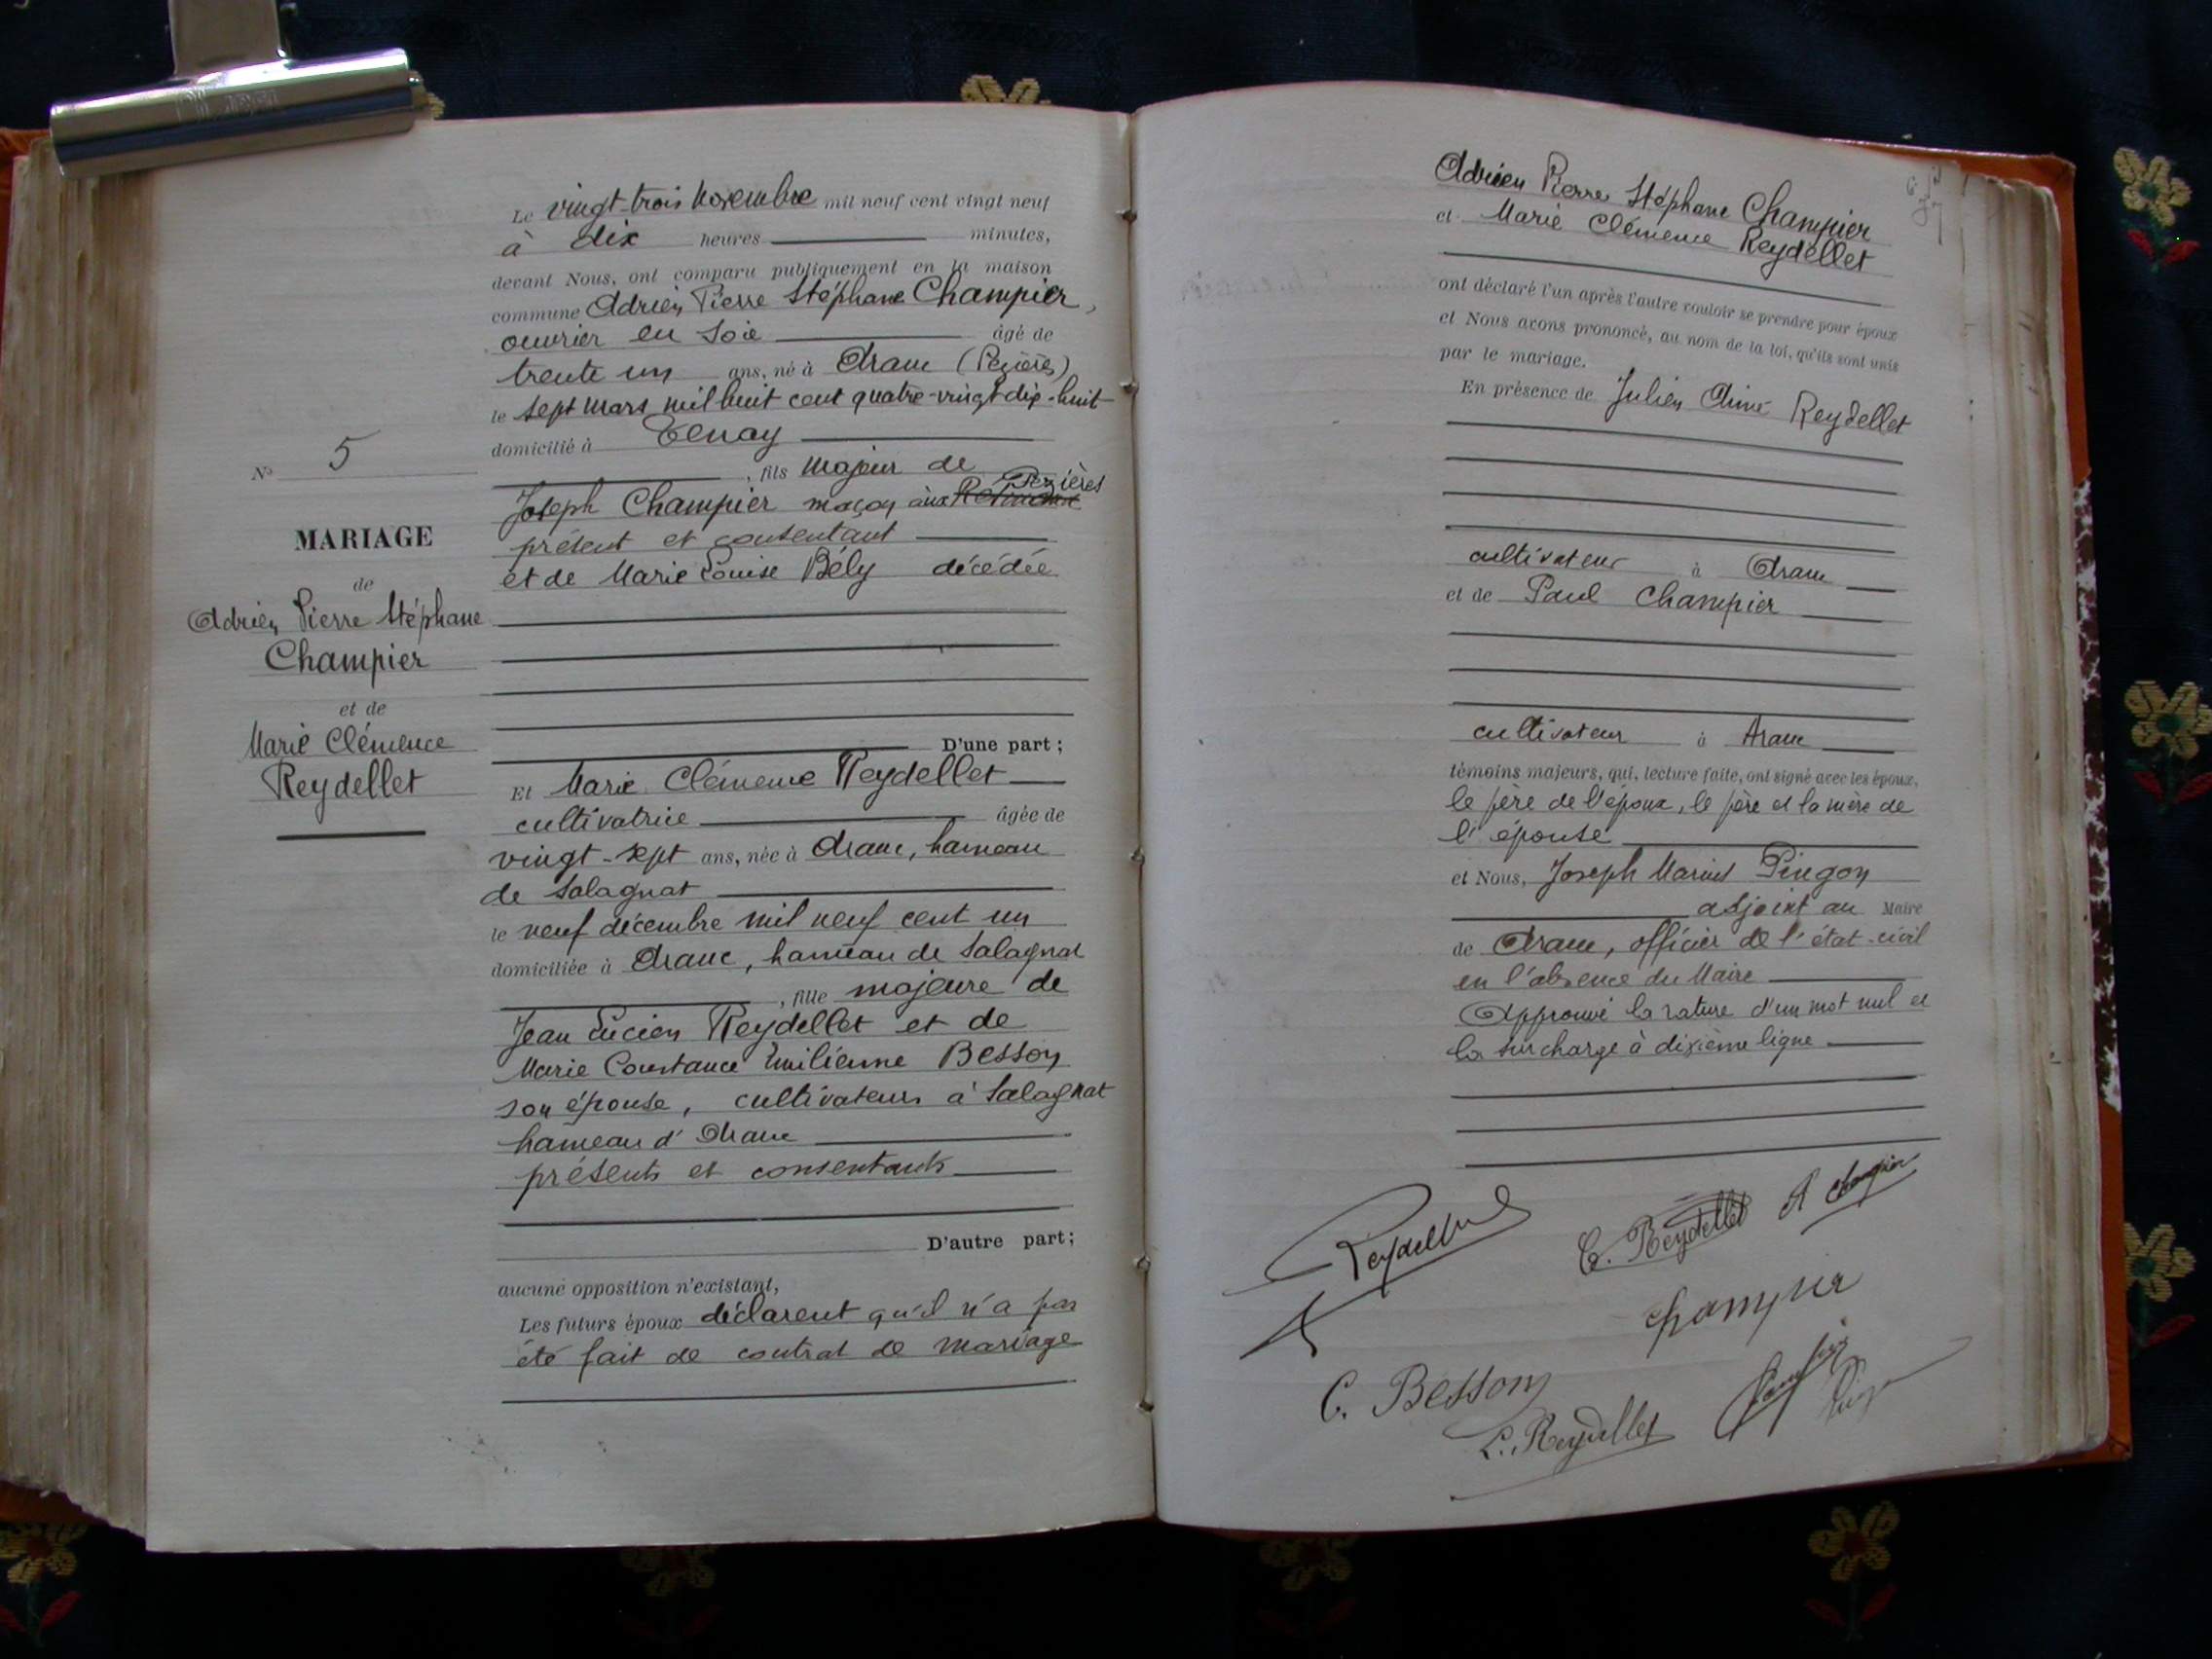 Le vingt-trois Novembre mil neuf cent vingt neuf
à dix heures minutes,
devant Nous, ont comparu publiquement en la maison
commune Adrien Pierre Stéphane Champier,
ouvrier en soie âgé de
trente un ans, né à Aranc (Pezières)
le sept mars mil huit cent quatre-vingt dix-huit
domicilié à Tenay
, fils majeur de
Pezières
Joseph Champier maçon aux
présent et consentant
et de Marie Louise Bély décédée
D'une part ;
Et Marie Clémence Reydellet
cultivatrice âgée de
vingt-sept ans, née à Aranc, hameau
de Salagnat
le neuf décembre mil neuf cent un
domiciliée à Aranc, hameau de Salagnat
, fille majeure de
Jean Lucien Reydellet et de
Marie Constance Emilienne Besson
son épouse, cultivateurs à Salagnat
hameau d'Aranc
présents et consentants
D'autre part ;
aucune opposition n'existant,
Les futurs époux déclarent qu'il n'a pas
été fait de contrat de mariage
No 5
MARIAGE
de
Adrien Pierre Stéphane
Champier
et de
Marie Clémence
Reydellet
Adrien Pierre Stéphane Champier
et Marie Clémence Reydellet
ont déclaré l'un après l'autre vouloir se prendre pour époux
et Nous avons prononcé, au nom de la loi, qu'ils sont unis
par le mariage.
En présence de Julien Aimé Reydellet
cultivateur à Aranc
et de Paul Champier
cultivateur à Aranc
témoins majeurs, qui, lecture faite, ont signé avec les époux,
le père de l'époux, le père et la mère de
l'épouse
et Nous, Joseph Marius Pingon
adjoint au Maire
de Aranc, officier de l'état-civil
en l'absence du Maire
Approuvé la rature d'un mot nul et
la surcharge à dixième ligne
Reydellet
C. Reydellet A Champier
Champier
C. Besson
L. Reydellet